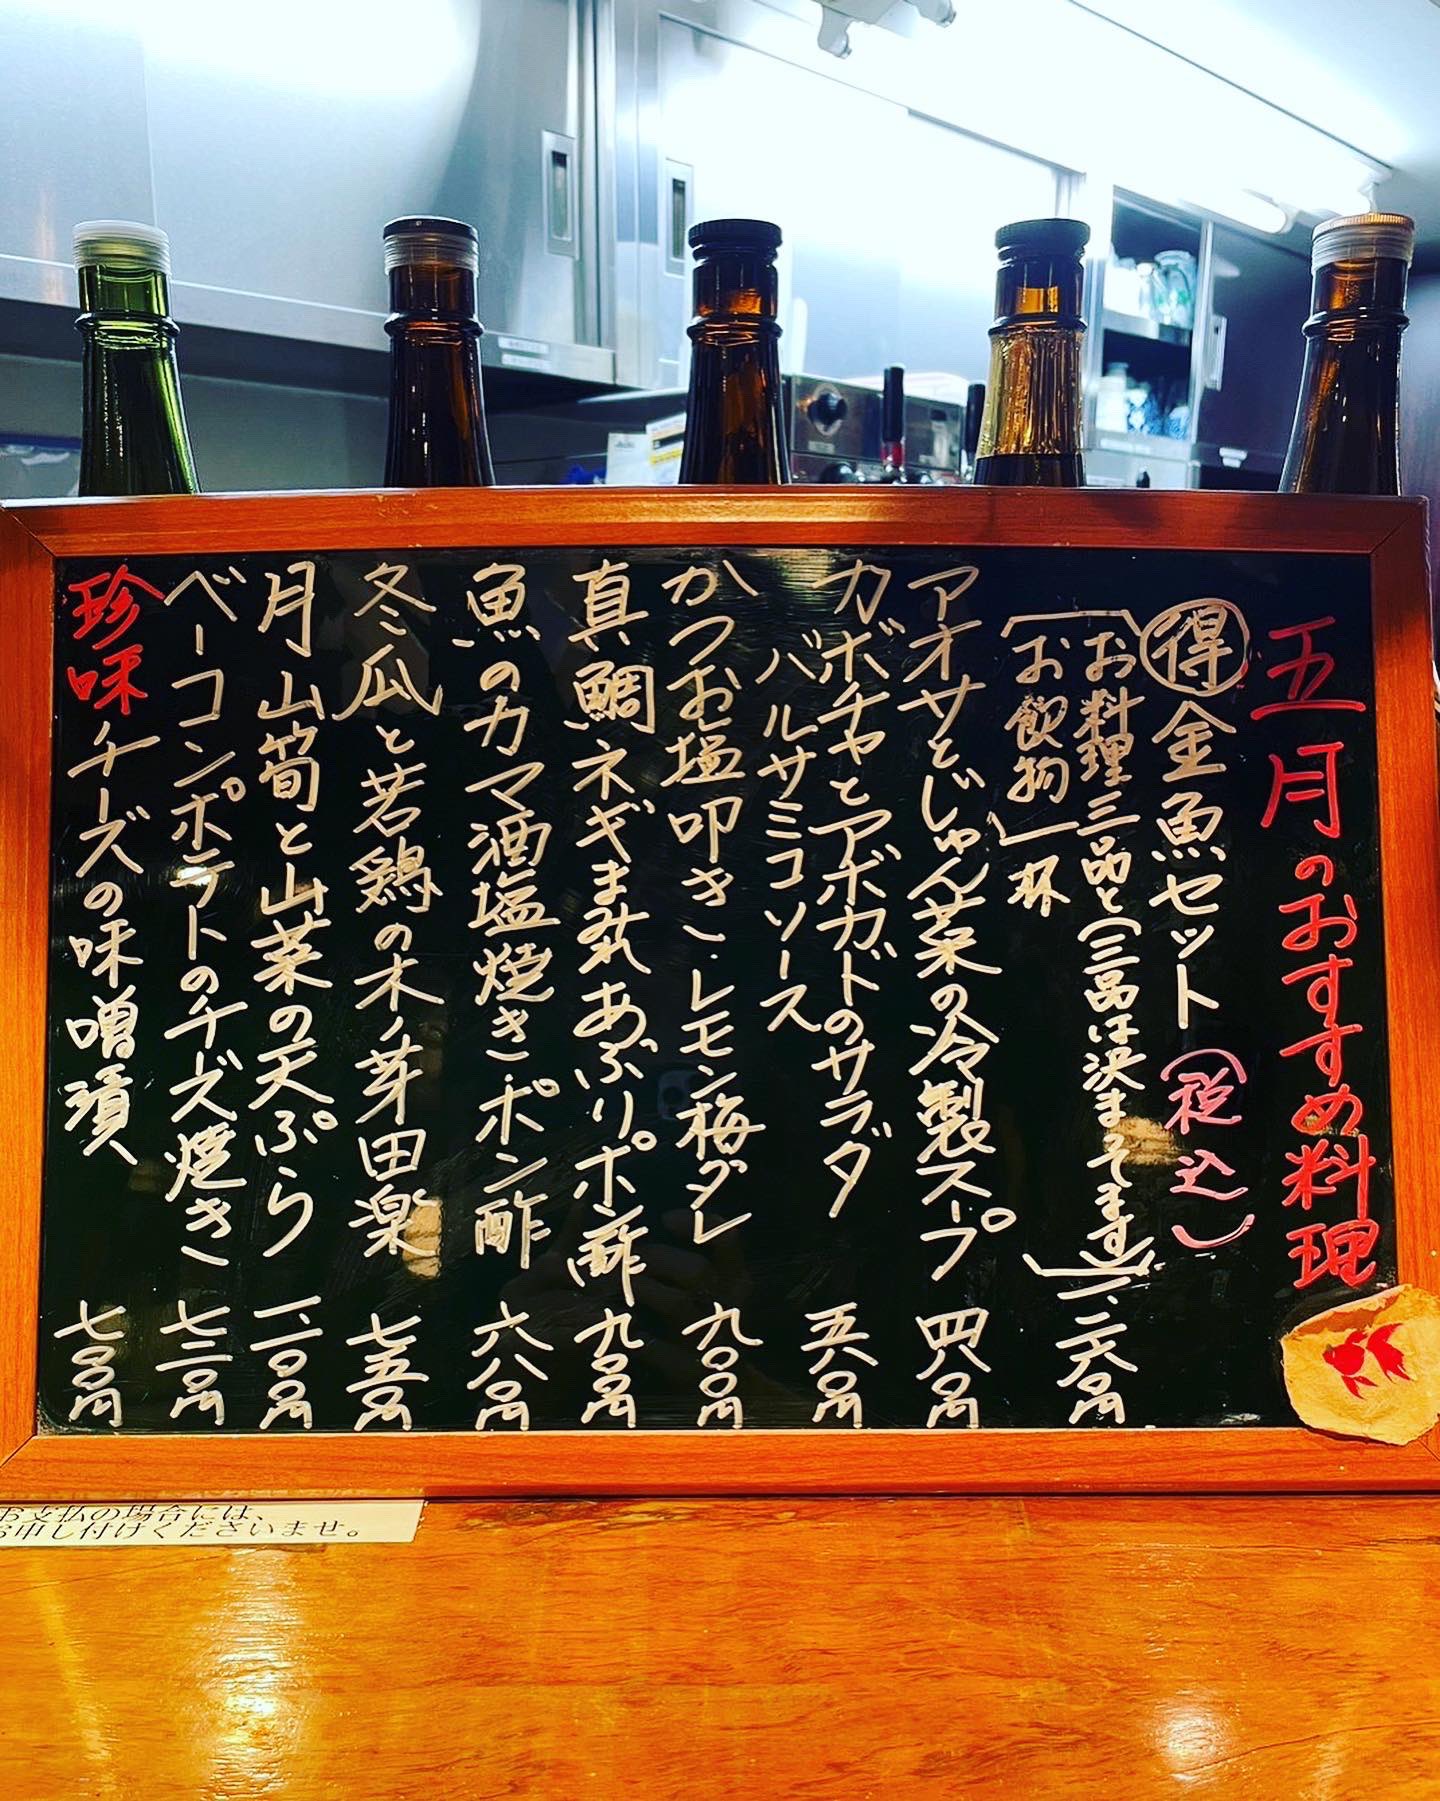 五月のおすすめ料理
得 金魚セット(税込)
お料理三品と(三品は決まってます)
お飲物一杯 一、二六〇円
アオサとじゅん菜の冷製スープ 四八〇円
カボチャとアボカドのサラダ
バルサミコソース 五八〇円
かつお塩叩き・レモン梅ダレ 九〇〇円
真鯛ネギまみれあぶりポン酢 九〇〇円
魚のカマ酒塩焼き・ポン酢 六八〇円
冬瓜と若鶏の木ノ芽田楽 七五〇円
月山筍と山菜の天ぷら 一、一〇〇円
ベーコンポテトのチーズ焼き 七二〇円
珍味 チーズの味噌漬 七〇〇円
お支払の場合には、
お申し付けくださいませ。